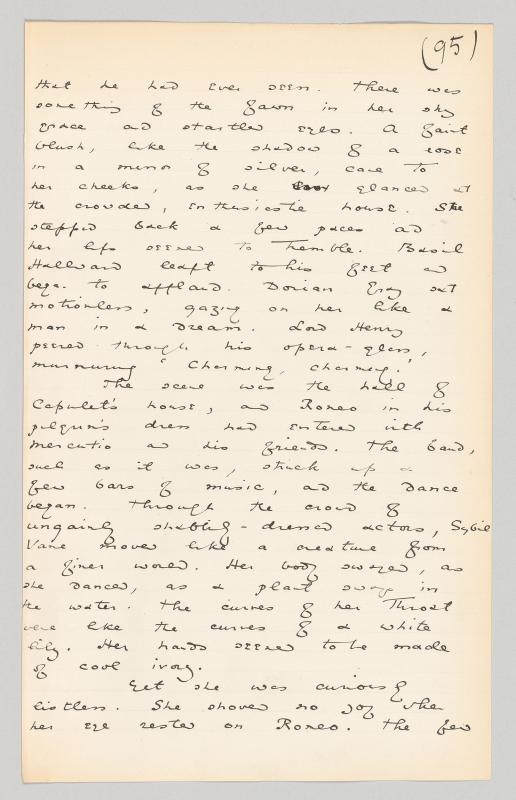 (95)
that he had ever seen. There was
something of the fawn in her shy
grace and startled eyes. A faint
blush, like the shadow of a rose
in a mirror of silver, came to
her cheeks, as she glanced at
the crowded, enthusiastic house. She
stepped back a few paces and
her lips seemed to tremble. Basil
Hallward leapt to his feet and
began to applaud. Dorian Gray sat
motionless, gazing on her like a
man in a dream. Lord Henry
peered through his opera-glass,
murmuring "Charming, charming."
The scene was the hall of
Capulet's house, and Romeo in his
pilgrim's dress had entered with
Mercutio and his friends. The band,
such as it was, struck up a
few bars of music, and the dance
began. Through the crowd of
ungainly shabbily-dressed actors, Sybil
Vane moved like a creature from
a finer world. Her body swayed, as
she danced, as a plant sways in
the water. The curves of her throat
were like the curves of a white
lily. Her hands seemed to be made
of cool ivory.
Yet she was curiously
listless. She showed no joy when
her eye rested on Romeo. The few